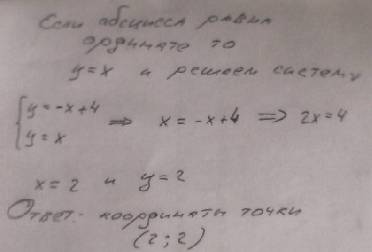 Если абсцисса равна
ординате то
y=x и решаем систему
{y=-x+4
y=x ⇒ x=-x+4 ⇒ 2x=4
x=2 и y=2
Ответ: координаты точки
(2;2)